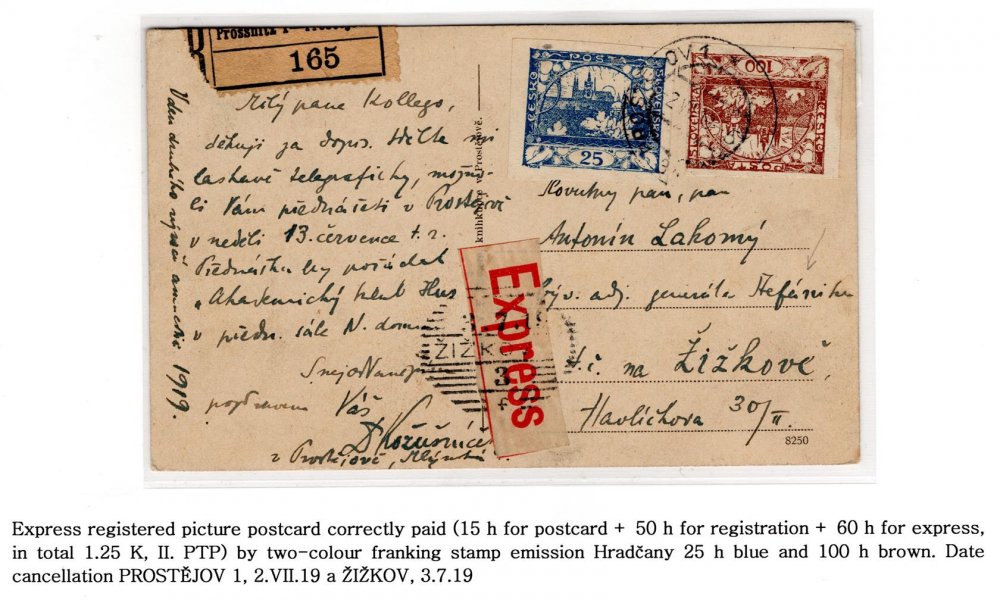 Prossnitz 1
165
V den druhého výročí amnestie 1919.
Milý pane Kollego,
děkuji za dopis. Sdělte mi
laskavě telegraficky, možno-
li Vám přednášeti v Prostějově
v neděli 13. července t. r.
Přednášku by pořádal
„Akademický klub Hus
v předn. sále N. domu
S nejoddanějším
pozdravem Váš
z Prostějově,
knihkupce v Prostějově.
POŠ
ČESKO
SLOVENSKÁ
25
100
POŠTA
ČESKO
SLOVENSKÁ
OV 1
Express
7.19
ŽIŽKO
3
pan, pan
Antonín Lakomý
býv. adj. generála Štefánika
na Žižkově
Havlíčkova 30/II.
8250
Express registered picture postcard correctly paid (15 h for postcard + 50 h for registration + 60 h for express,
in total 1.25 K, II. PTP) by two-colour franking stamp emission Hradčany 25 h blue and 100 h brown. Date
cancellation PROSTĚJOV 1, 2.VII.19 a ŽIŽKOV, 3.7.19